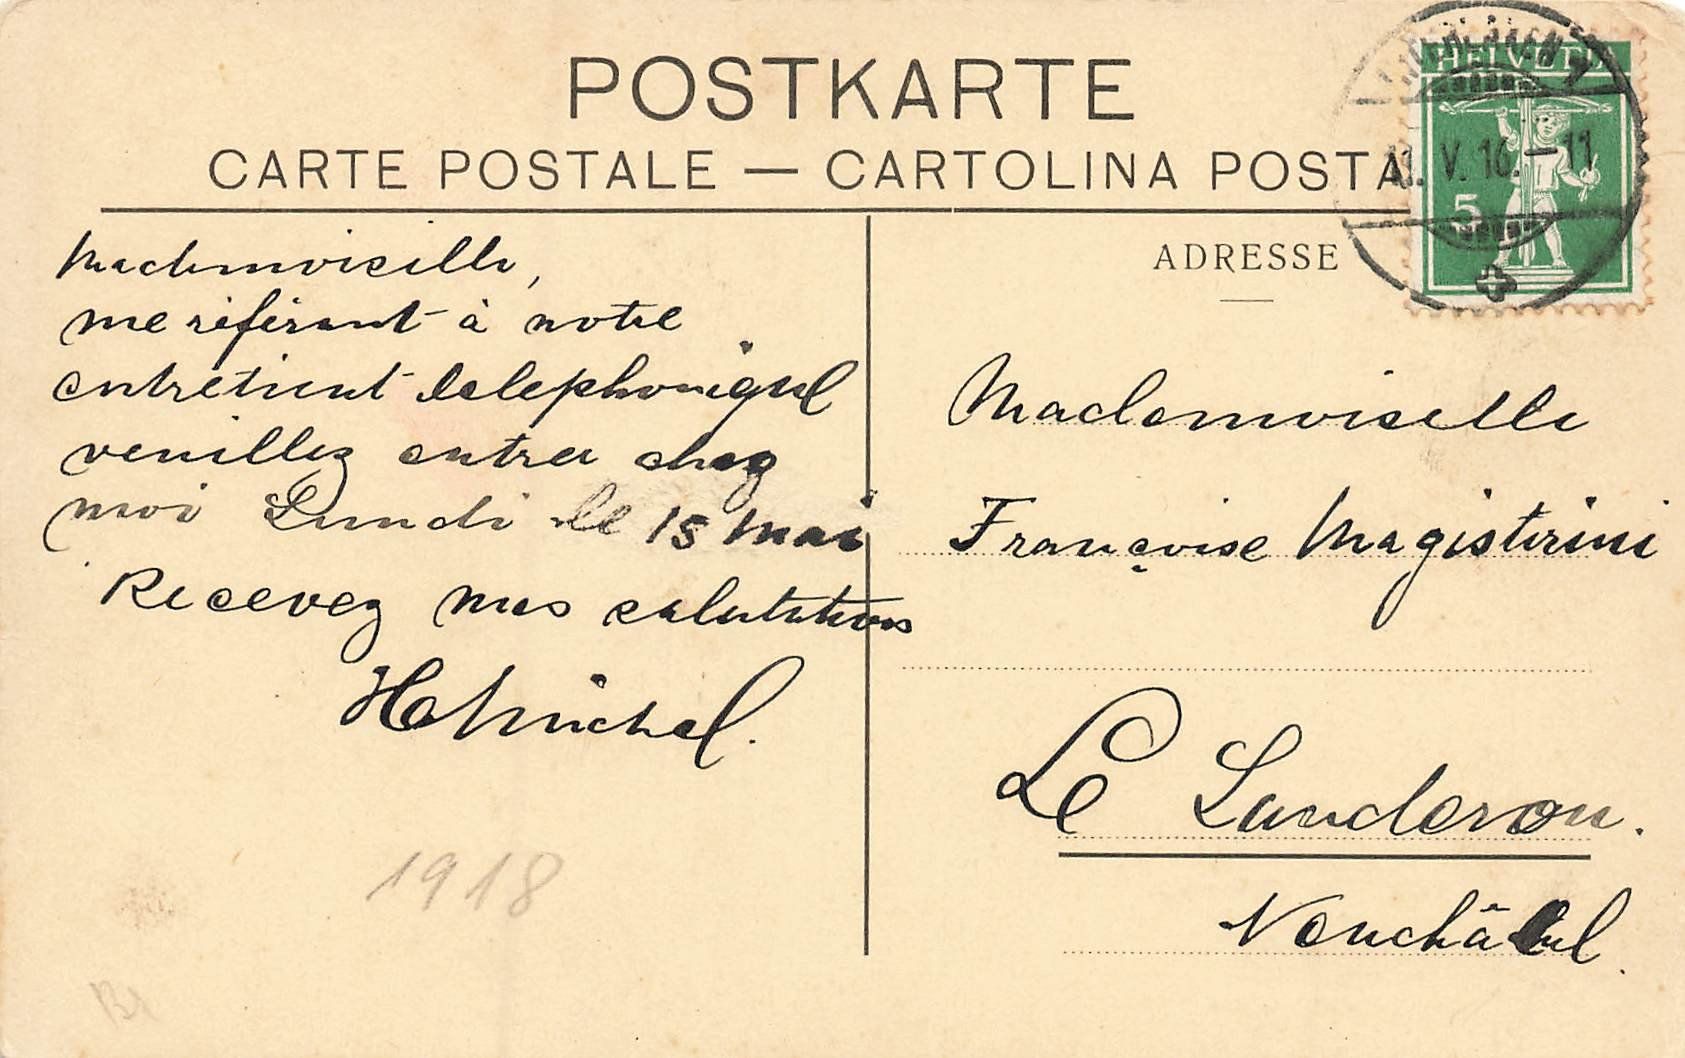 POSTKARTE
CARTE POSTALE — CARTOLINA POSTA
HELVETIA
V. 16. – 11
5
ADRESSE
Mademoiselle,
me référant à notre
entretient telephonique
veuillez entrer chez
moi Lundi le 15 Mai
Recevez mes salutations
Mademoiselle
Françoise Magisterini
Le Landeron.
Neuchâtel.
1918